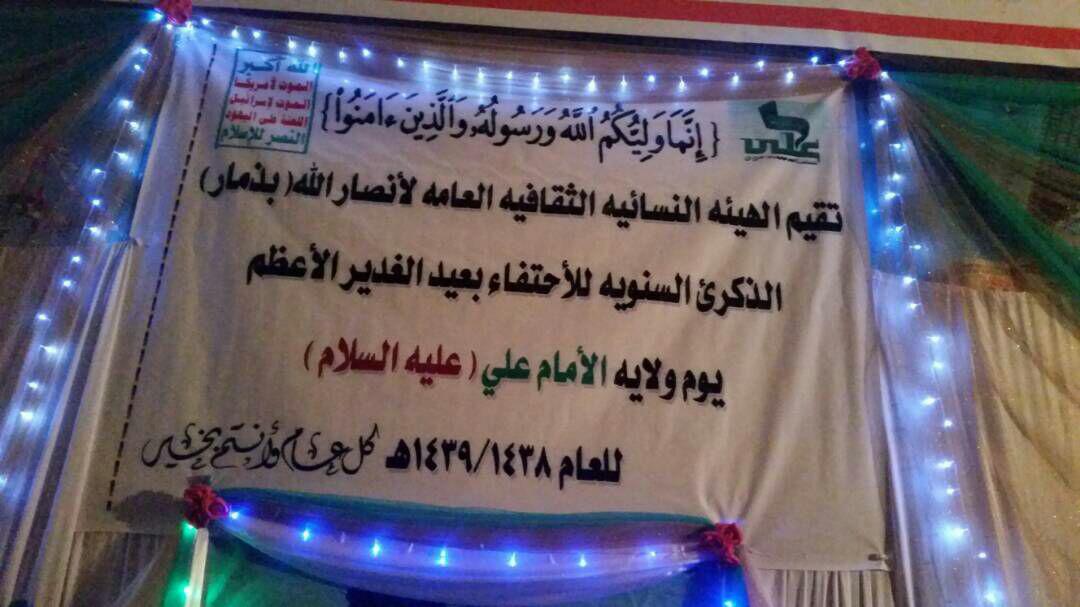 الله أكبر
الموت لأمريكا
الموت لإسرائيل
اللعنة على اليهود
النصر للإسلام
علي
{ إِنَّمَا وَلِيُّكُمُ ٱللَّهُ وَرَسُولُهُۥ وَٱلَّذِينَ ءَامَنُوا۟ }
تقيم الهيئه النسائيه الثقافيه العامه لأنصار الله( بذمار)
الذكرئ السنويه للأحتفاء بعيد الغدير الأعظم
يوم ولايه الأمام علي ( عليه السلام )
للعام ١٤٣٩/١٤٣٨هـ كل عام وأنتم بخير